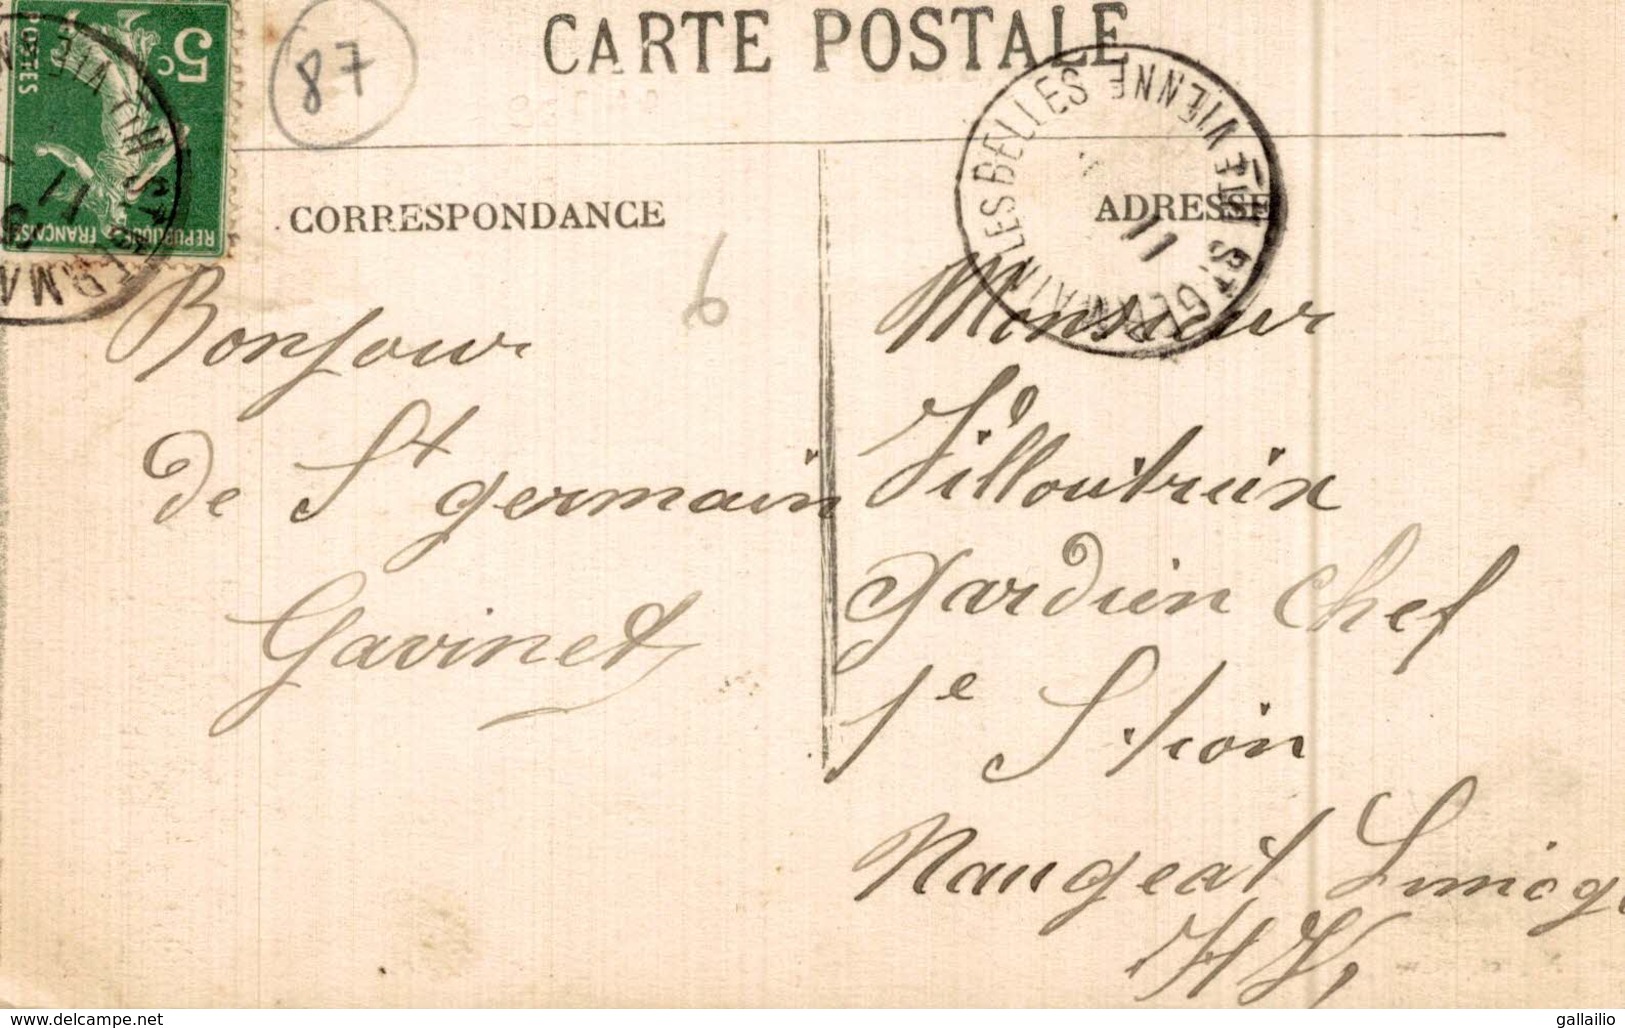 CARTE POSTALE
87
5c
POSTES
REPUBLIQUE FRANÇAISE
CORRESPONDANCE
ADRESSE
ST GERMAIN LES BELLES
HTE VIENNE
11
6
Bonjour
de St germain
Gavinet
Monsieur
Villoutreix
Gardien chef
1e Stion
Naugeat Limoge
HV
www.delcampe.net
gallailio